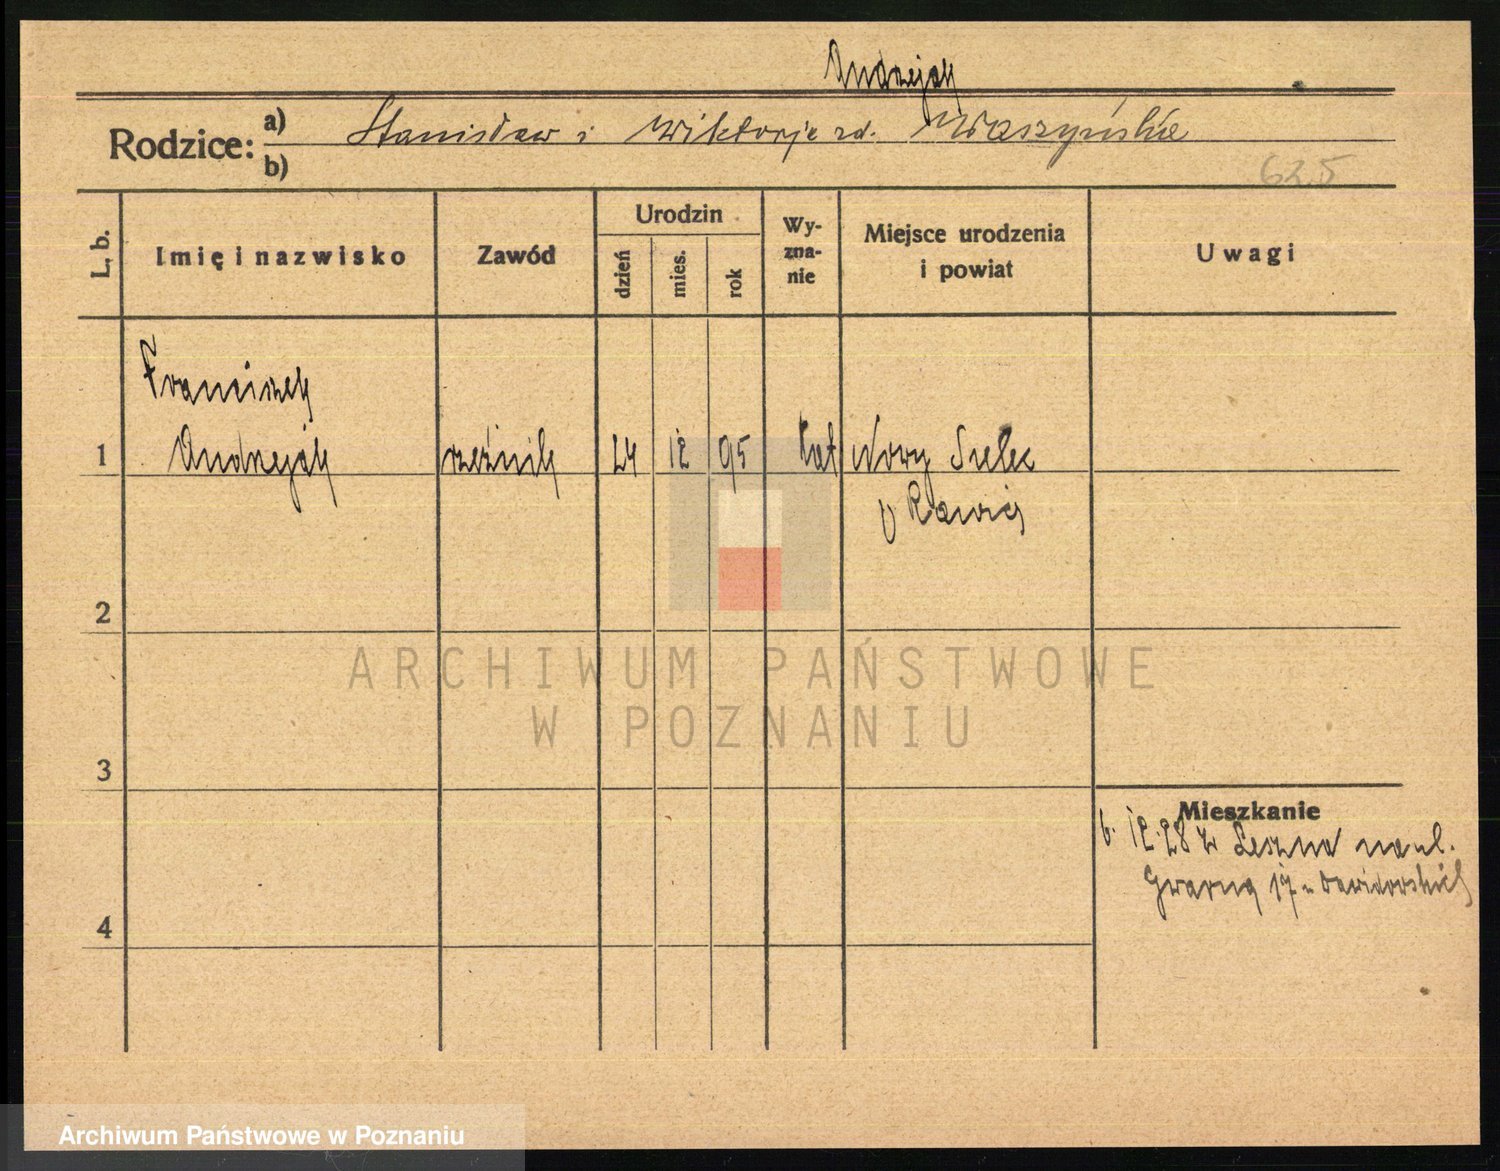 Andrzejak
Rodzice: a) Stanisław i Wiktorja zd. Waszyńskie
b)
625
L. b.
Imię i nazwisko
Zawód
Urodzin
dzień
mies.
rok
Wy-
zna-
nie
Miejsce urodzenia
i powiat
Uwagi
Franciszek
1 Andrzejak rzeźnik 24 12 95 kat Nowy Sielec
p Rawicz
2
3
4
Mieszkanie
6. 12. 28 z Leszna na ul.
Gwarną 17 u Dawidowskich
ARCHIWUM PAŃSTWOWE
W POZNANIU
Archiwum Państwowe w Poznaniu